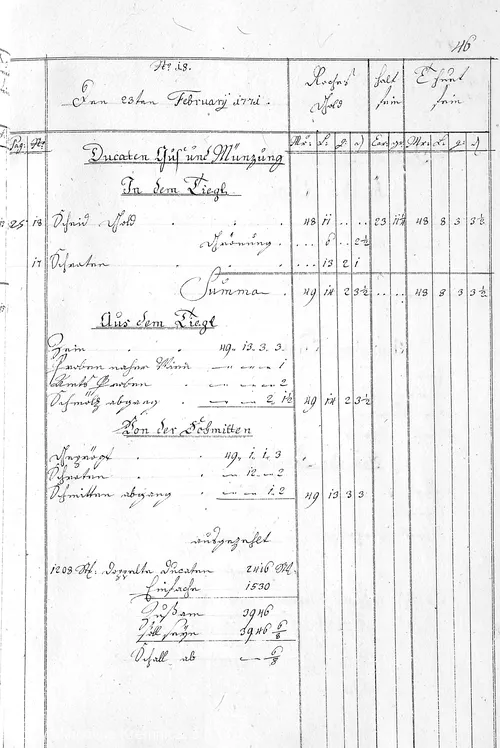 46
No. 18.
Den 23ten February 1771.
Roches Gold
halt fein
Thuet fein
Pag: No
Mr: L: q: d)
Car: gr:
Mr: L. q: d)
Ducaten Gus und Münzung
In dem Tiegl.
25 18 Scheid Gold . . 48 11 . . 23 11¼ 48 8 3 3½
. . . 6 . . 2½
17 Schroten . . . . . 13 2 1
Summa . 49 14 2 3½ . . . . 48 8 3 3½
Aus dem Tiegl
Zein . . 49. 13. 3. 3.
Proben naher Wien — — — 1
Amts Proben — — — 2
Schmölz abgang . — — 2. 1½ 49 14 2 3½
Von der Schmitten
. . 49. 1. 1. 3
Schroten . . — 12. — 2
Schmitten abgang . — — 1. 2 49 13 3 3
ausgezehlt
1208 St. doppelte Ducaten 2416 St.
Einfache 1530
Zusam 3946
Soll seyn 3946 6/8
Schall ab — 6/8